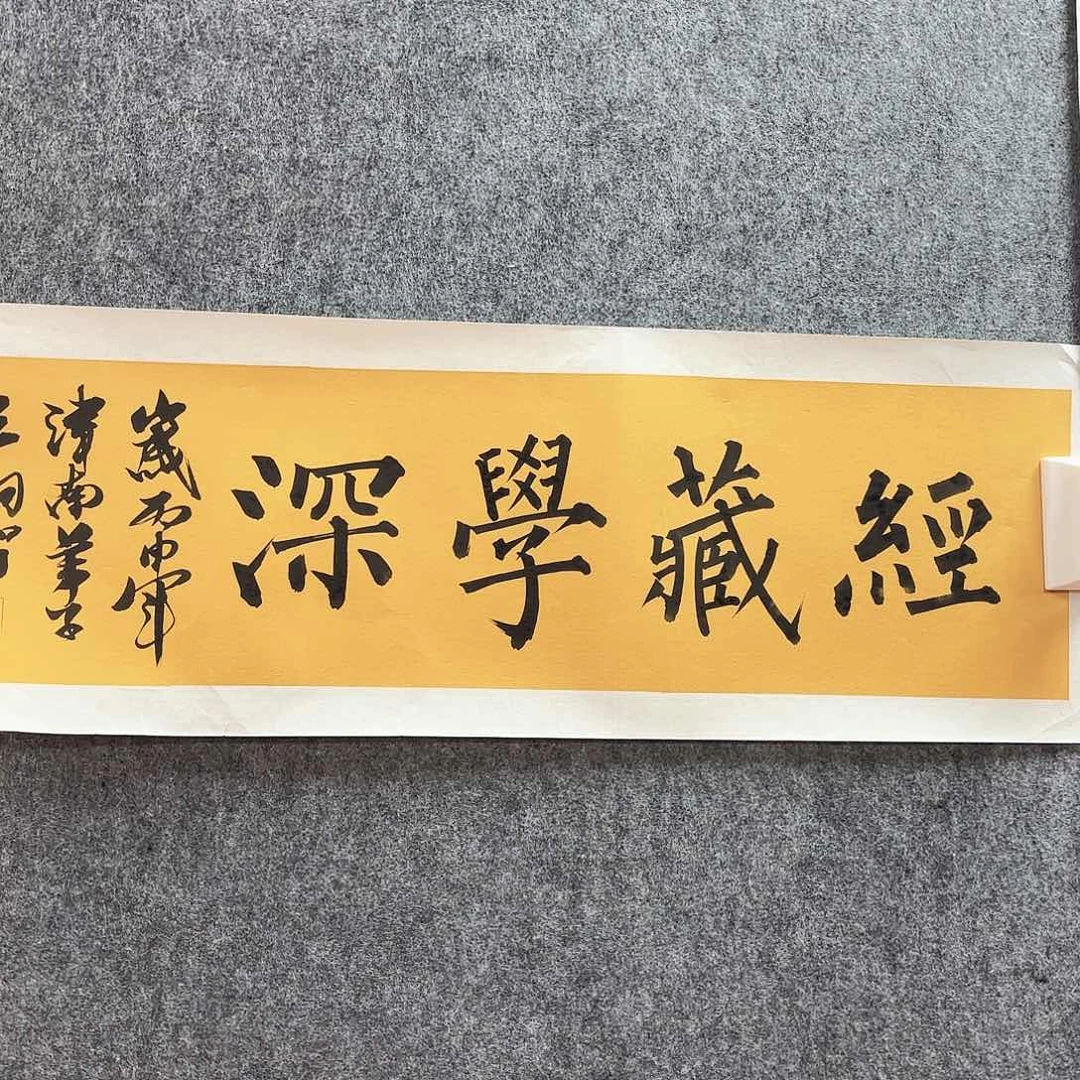 經藏學深
歲丙申年
濟南業子